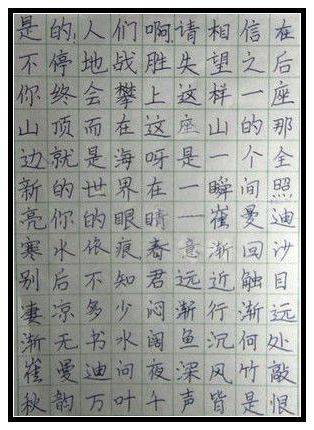 是的!人们啊,请相信在
不停地战胜失望之后
你终会攀上这样一座
山顶而在这座山的那
边就是海呀是一个全
新的世界在一瞬间照
亮你的眼睛一崔曼迪
寒水依痕春意渐回沙
别后不知君远近触目
凄凉多少闷渐行渐远
渐无书水阔鱼沉何处
崔曼迪问夜深风竹敲
秋韵万叶千声皆是恨